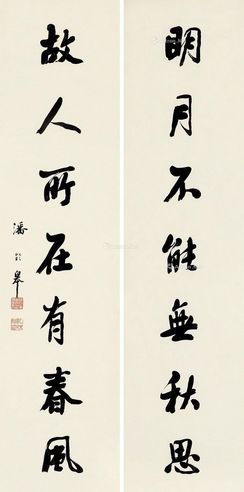 明月不能無秋思
故人所在有春風
潘齡皋